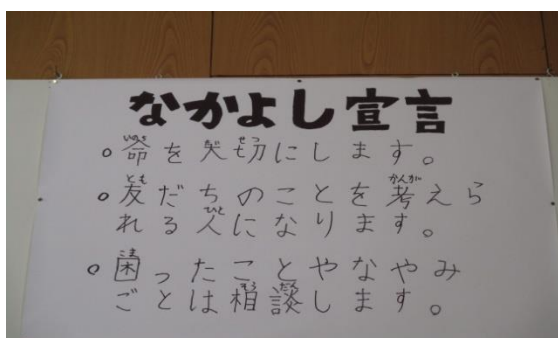 なかよし宣言
○命を大切にします。
○友だちのことを考えら
れる人になります。
○困ったことやなやみ
ごとは相談します。